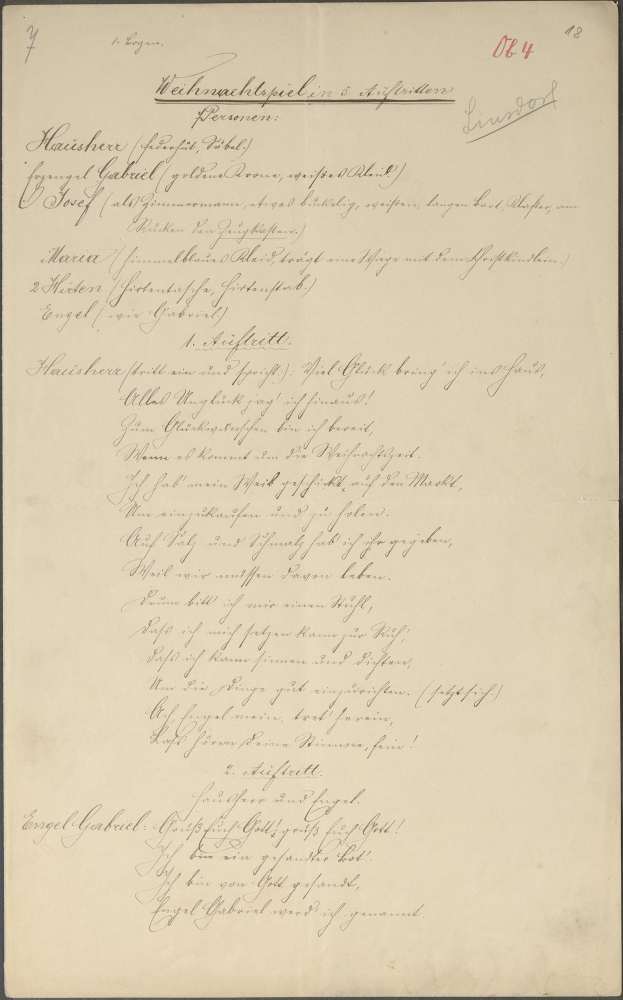 7
1. Bogen.
Ob 4
18
Weihnachtspiel in 5 Auftritten
Linsdorf
Personen:
Hausherr (Federhut, Säbel.)
Erzengel Gabriel (goldene Krone, weißes Kleid.)
Josef (als Zimmermann, etwas buckelig, weißen, langen Bart, Klafter, am
Rücken den Zeugkasten.)
Maria (himmelblaues Kleid, trägt eine Wiege mit dem Christkindlein.)
2 Hirten (Hirtentasche, Hirtenstab.)
Engel (wie Gabriel.)
1. Auftritt.
Hausherr (tritt ein und spricht.): Viel Glück bring' ich ins Haus,
Alles Unglück jag' ich hinaus!
Zum Glückwünschen bin ich bereit,
Wenn es kommt um die Weihnachtszeit.
Ich hab' mein Weib geschickt auf den Markt,
Um einzukaufen und zu holen.
Auf Salz und Schmalz hab ich ihr gegeben,
Weil wir müssen davon leben.
Drum bitt' ich mir einen Stuhl,
Daß ich mich setzen kann zur Ruh',
Daß ich kann sinnen und dichten,
Um die Dinge gut einzurichten. (setzt sich.)
Ach, Engel mein, tret' herein,
Laß hören Deine Stimme, fein!
2. Auftritt.
Hausherr und Engel.
Engel Gabriel: Grüß Euch Gott! grüß Euch Gott!
Ich bin ein gesandter Bot'.
Ich bin von Gott gesandt,
Engel Gabriel werd' ich genannt.